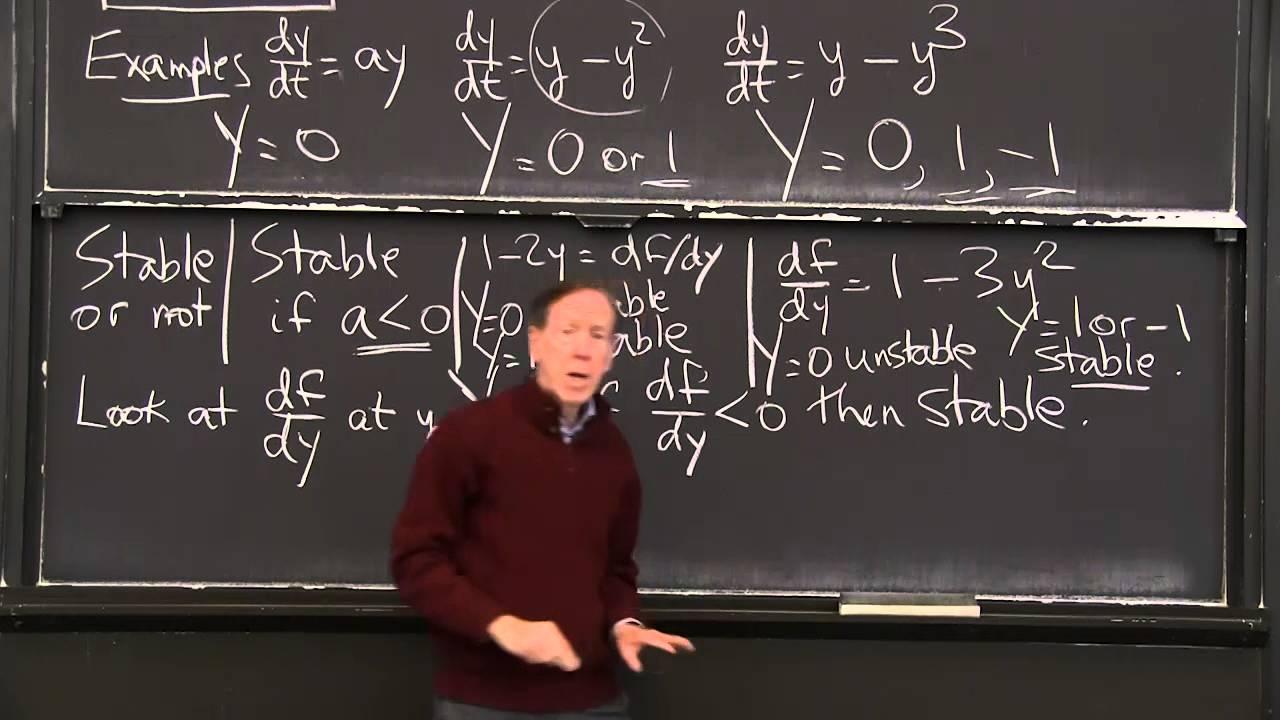 Examples dy/dt = ay dy/dt = y - y² dy/dt = y - y³
Y = 0 Y = 0 or 1 Y = 0, 1, -1
Stable or not | Stable if a < 0 | 1 - 2y = df/dy | df/dy = 1 - 3y²
Y = 0
Y = 0 unstable Y = 1 or -1 stable.
Look at df/dy at df/dy < 0 then stable.